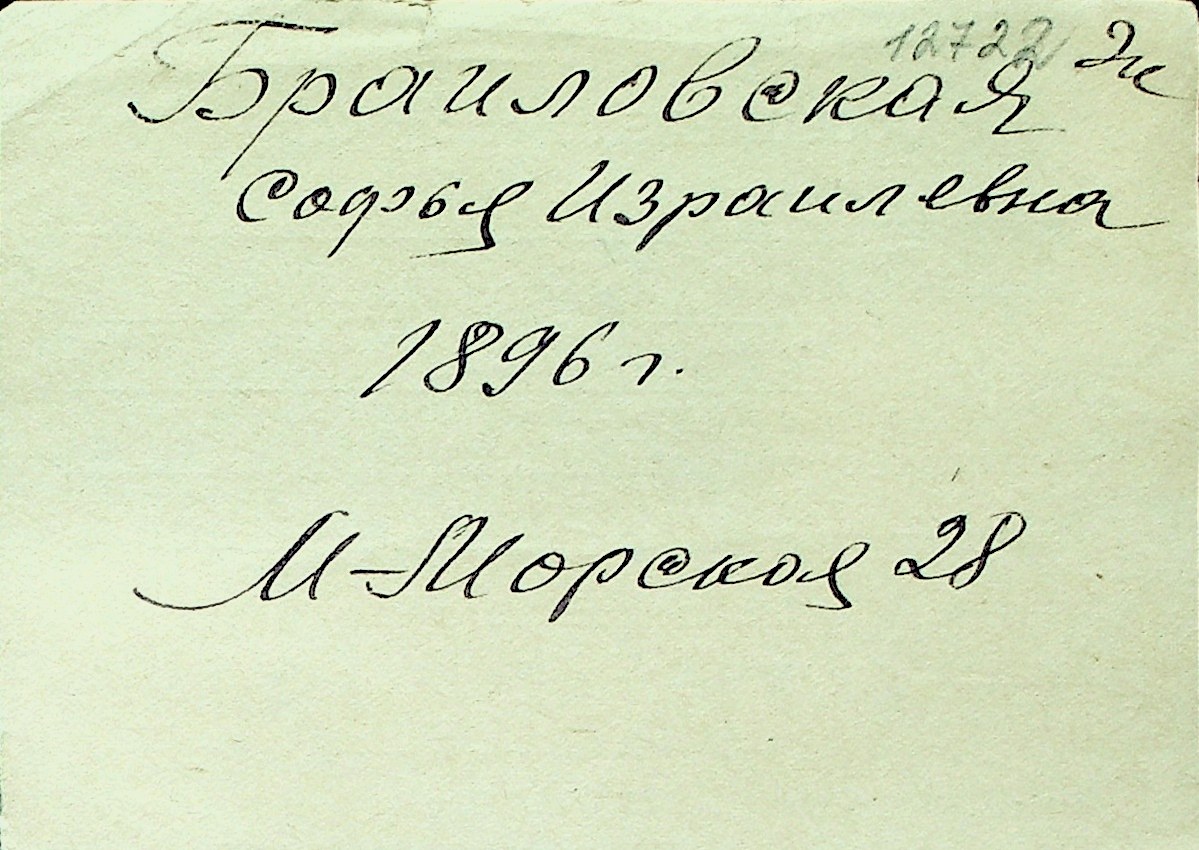 12722
Браиловская
Софья Израилевна
1896 г.
М-Морская 28